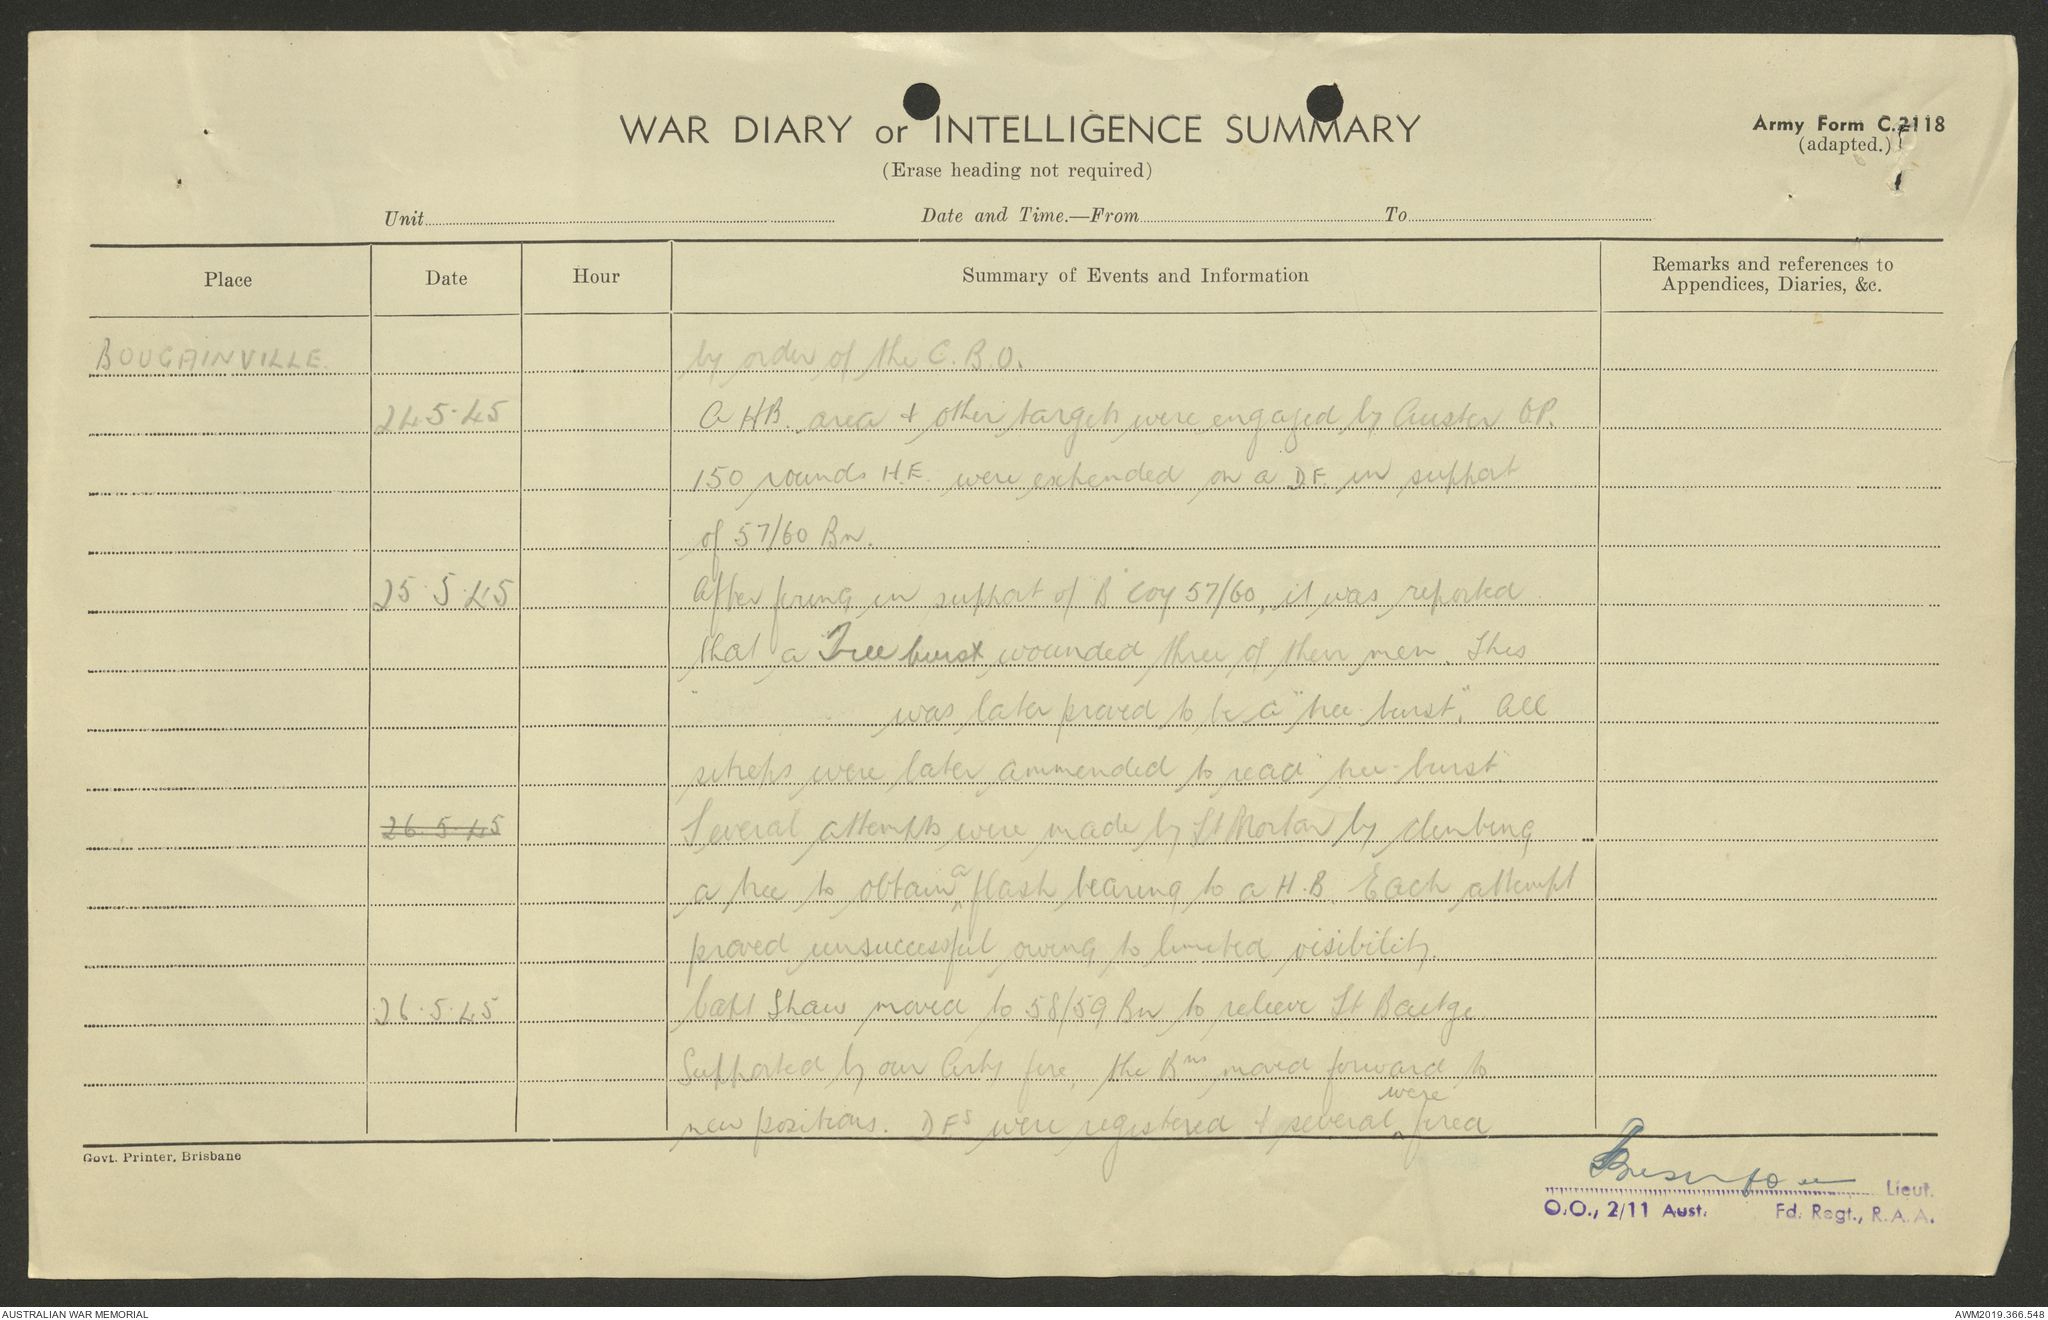 WAR DIARY or INTELLIGENCE SUMMARY
(Erase heading not required)
Army Form C.2118
(adapted.)
Unit Date and Time.—From To
Place Date Hour Summary of Events and Information Remarks and references to
Appendices, Diaries, &c.
BOUGAINVILLE. by order of the C.B.O.
24.5.45 A HB. area & other targets were engaged by Auster O.P.
150 rounds H.E. were expended on a DF in support
of 57/60 Bn.
25.5.45 After firing in support of B Coy 57/60, it was reported
that a Tree burst wounded three of their men. This
was later proved to be a "tree burst". All
sitreps were later ammended to read "tree-burst".
26.5.45 Several attempts were made by Lt Morton by climbing
a tree to obtain a flash bearing to a H.B. Each attempt
proved unsuccessful owing to limited visibility.
26.5.45 Capt Shaw moved to 58/59 Bn to relieve Lt
Supported by our Arty fire, the Bns moved forward to
new positions. DFs were registered & several were fired
Govt. Printer, Brisbane
Lieut.
O.O., 2/11 Aust. Fd. Regt., R.A.A.
AUSTRALIAN WAR MEMORIAL AWM2019.366.548